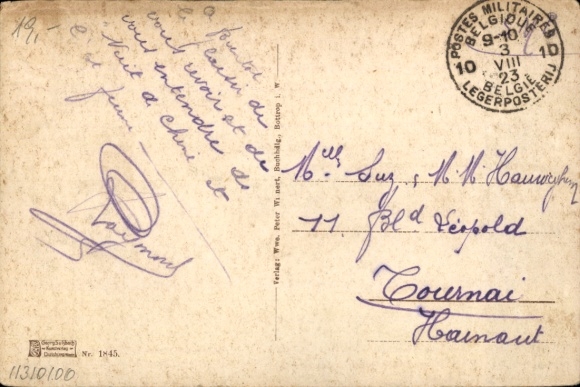 19,-
A Bientôt
le plaisir de
vous revoir et de
vous entendre de
Nuit de Chine et
Raymond
POSTES MILITAIRES
BELGIQUE
9-10
3
VIII
23
10 10
BELGIË
LEGERPOSTERIJ
Verlag: Wwe. Peter Weinert, Buchhdlg., Bottrop i. W.
Melle Suz, M. M.
11 Bld Léopold
Tournai
Hainaut
Nr. 1845.
11310100